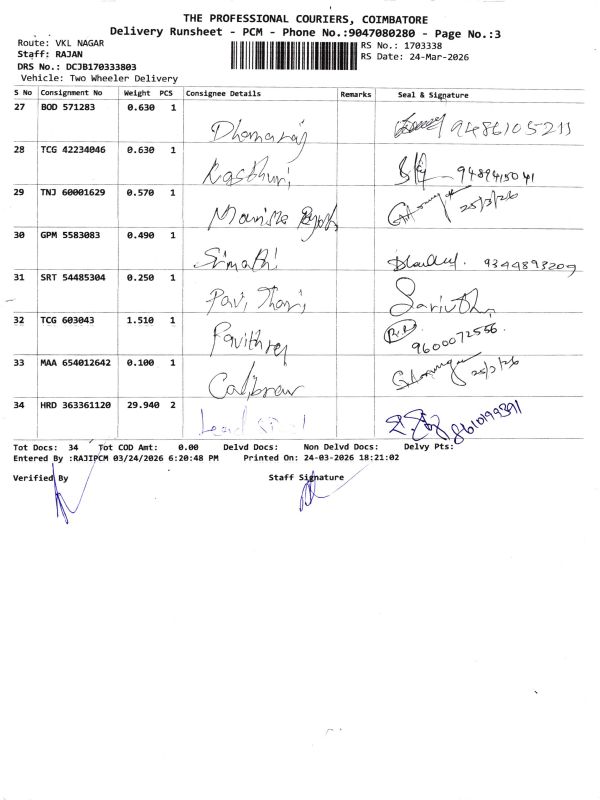 THE PROFESSIONAL COURIERS, COIMBATORE
Delivery Runsheet - PCM - Phone No.:9047080280 - Page No.:3
Route: VKL NAGAR
Staff: RAJAN
DRS No.: DCJB170333803
Vehicle: Two Wheeler Delivery
RS No.: 1703338
RS Date: 24-Mar-2026
S No Consignment No Weight PCS Consignee Details Remarks Seal & Signature
27 BOD 571283 0.630 1 Dhanaraj 9486105211
28 TCG 42234046 0.630 1 Kasthuri 9489415041
29 TNJ 60001629 0.570 1 25/3/26
30 GPM 5583083 0.490 1 Srimathi 9344893209
31 SRT 54485304 0.250 1
32 TCG 603043 1.510 1 9600072556
33 MAA 654012642 0.100 1 25/3/26
34 HRD 363361120 29.940 2 8610199391
Tot Docs: 34 Tot COD Amt: 0.00 Delvd Docs: Non Delvd Docs: Delvy Pts:
Entered By :RAJIPCM 03/24/2026 6:20:48 PM Printed On: 24-03-2026 18:21:02
Verified By Staff Signature